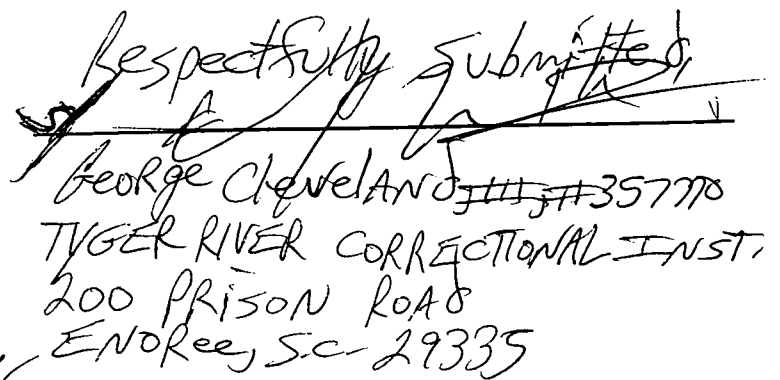 Respectfully Submitted,
George Cleveland, III, #357770
TYGER RIVER CORRECTIONAL INST.
200 PRISON ROAD
ENOREE, S.C. 29335